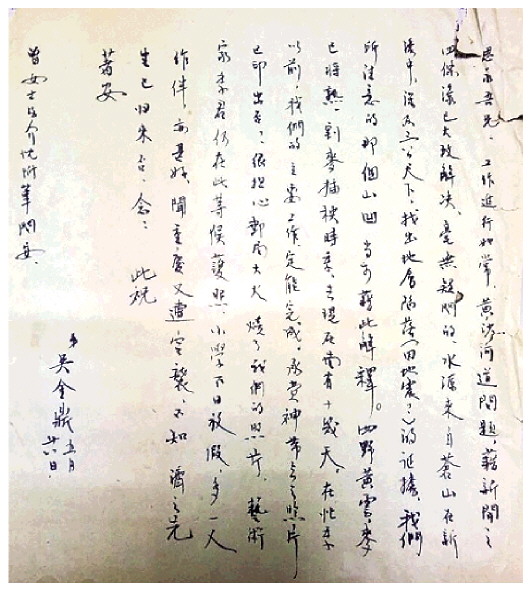 思永吾兄：工作進行如常，黄沙河道問題，藉新開之
四條溝已大致解决，毫無疑問的，水源來自蒼山在新
溝中，深三公尺下，找出地層陷落（因地震？）的证據，我們
所注意的那個山凹當可藉此解釋。四野黄雲，麥
已將熟，割麥插秧時季，去現在尚有十幾天，在忙季
以前，我們的主要工作定能完成。承費神帶去之照片
已印出否？很担心郵局大火燒了我們的照片。藝術
家李君仍在此等候護照，小學百日放假，多一人
作伴亦甚好，聞重慶又遭空襲，不知濟之先
生已归来否？念念 此祝
著安
曾女士介忱附筆問安
弟吴金鼎 五月
廿八日.